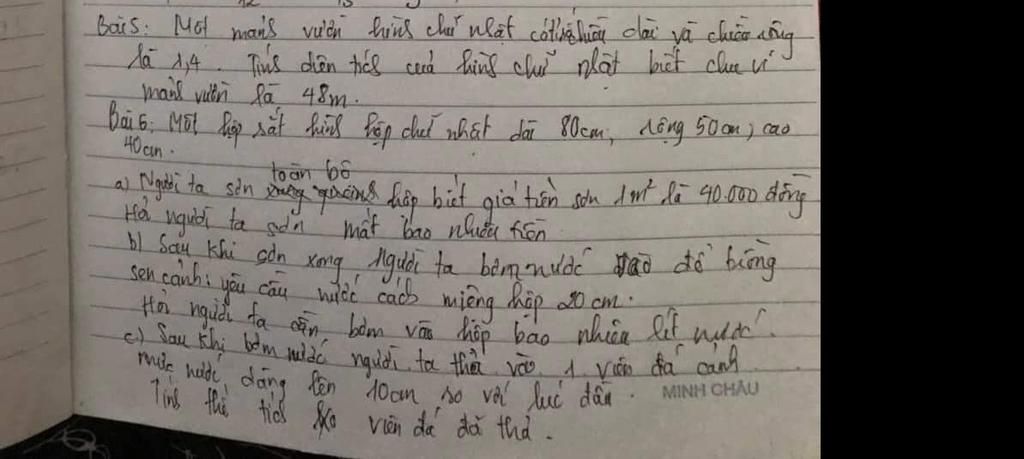 Bài 5: Một mảnh vườn hình chữ nhật có chiều dài và chiều rộng
là 1,4. Tính diện tích cuả hình chữ nhật biết chu vi
mảnh vườn là 48m.
Bài 6: Một hộp sắt hình hộp chữ nhật dài 80cm, rộng 50cm, cao
40cm.
toàn bộ
a) Người ta sơn hộp biết giá tiền sơn 1m² là 40.000 đồng
Hỏi người ta sơn mất bao nhiêu tiền
b) Sau khi sơn xong người ta bơm nước vào để
sen cảnh: yêu cầu nước cách miệng hộp 20cm.
Hỏi người ta cần bơm vào hộp bao nhiêu lít nước.
c) Sau khi bơm nước người ta thả vào 1 viên đá cảnh
mực nước dâng lên 10cm so với lúc đầu.
MINH CHÂU
Tính thể tích viên đá đã thả.